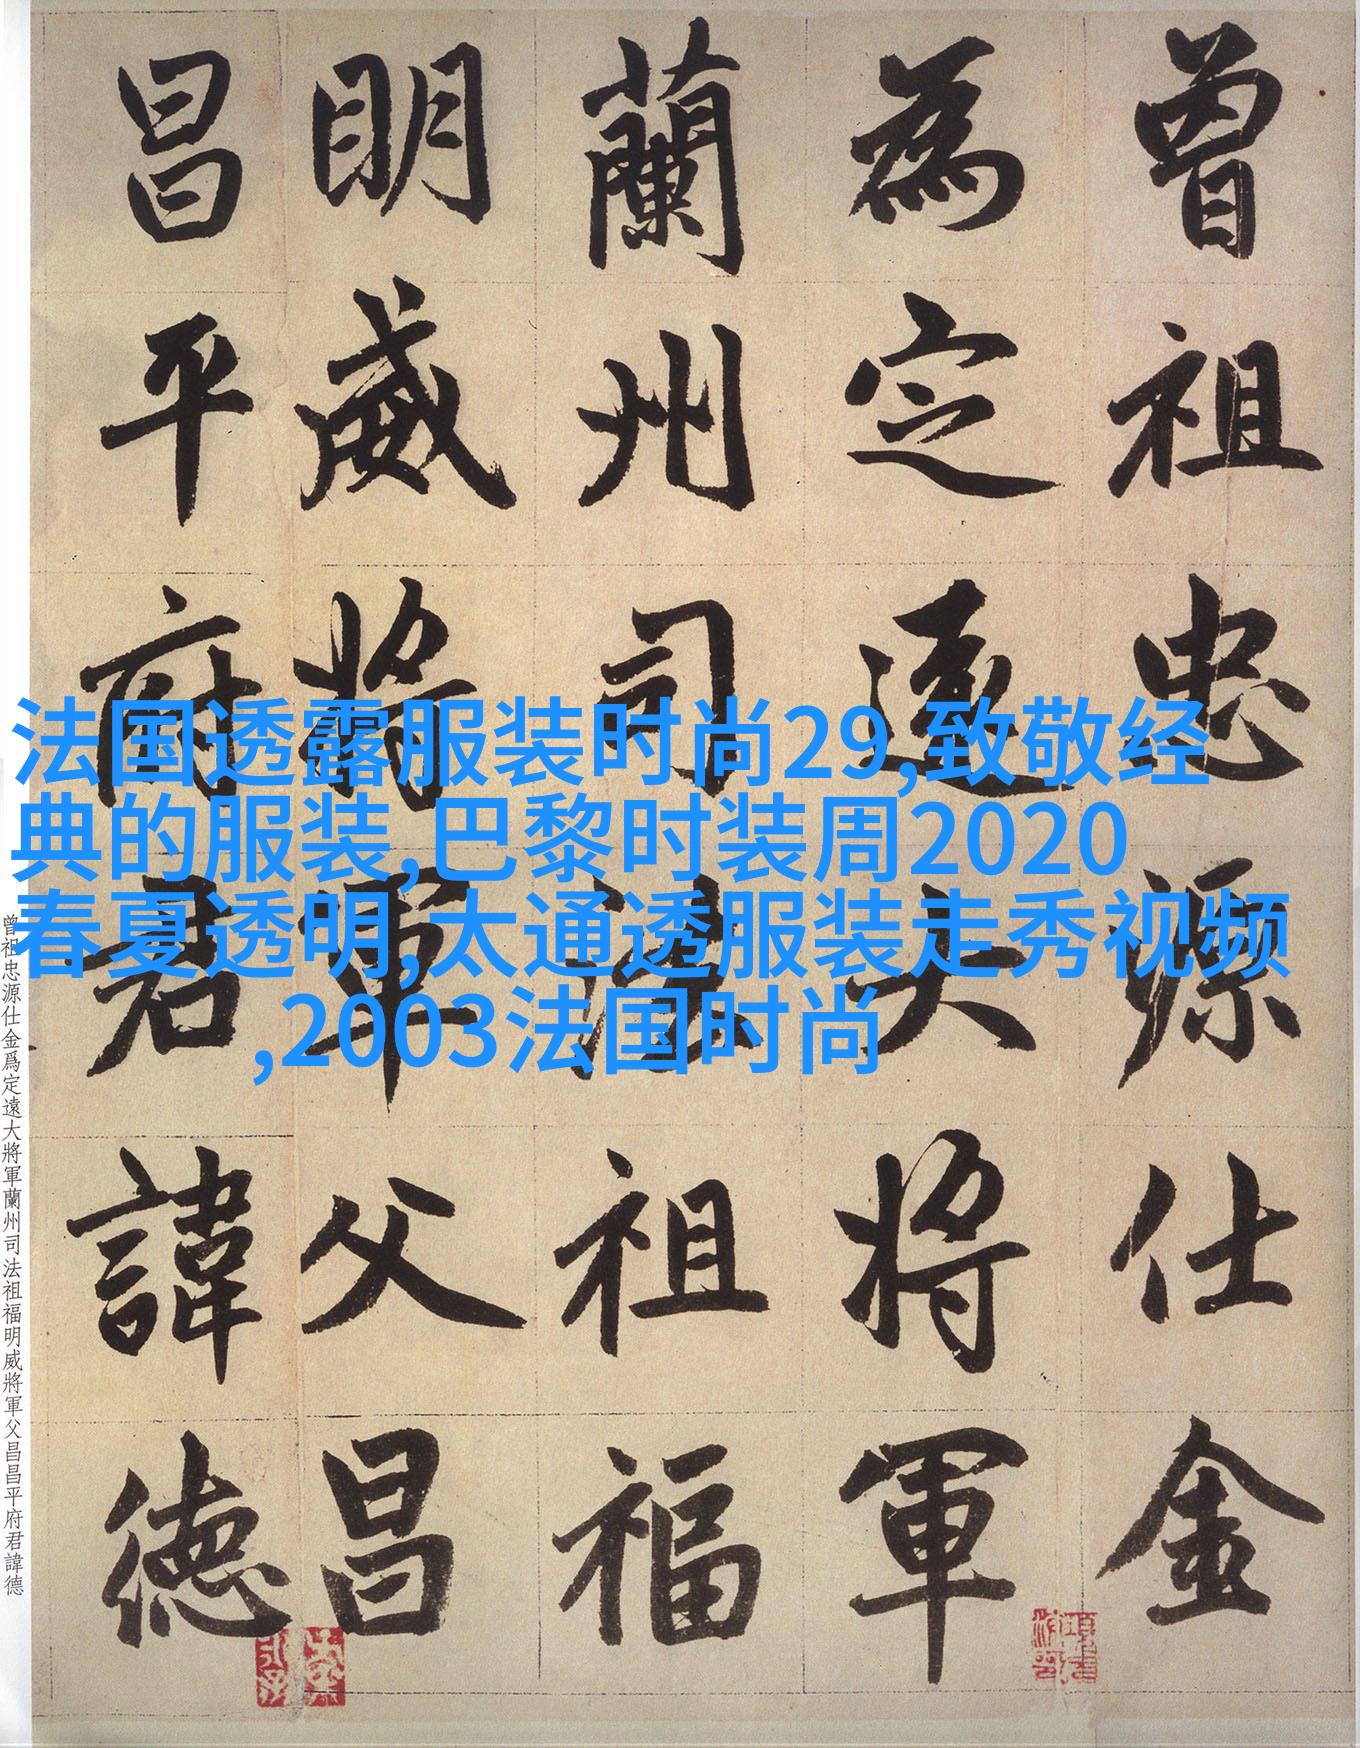 曾祖忠源仕金
為定遠大将軍
蘭州司法祖福
明威将軍父昌
昌平府君諱德
法国透露服装时尚29,致敬经
典的服装,巴黎时装周2020
春夏透明,太通透服装走秀视频
,2003法国时尚
曾祖忠源仕金爲定遠大將軍蘭州司法祖福明威將軍父昌昌平府君諱德